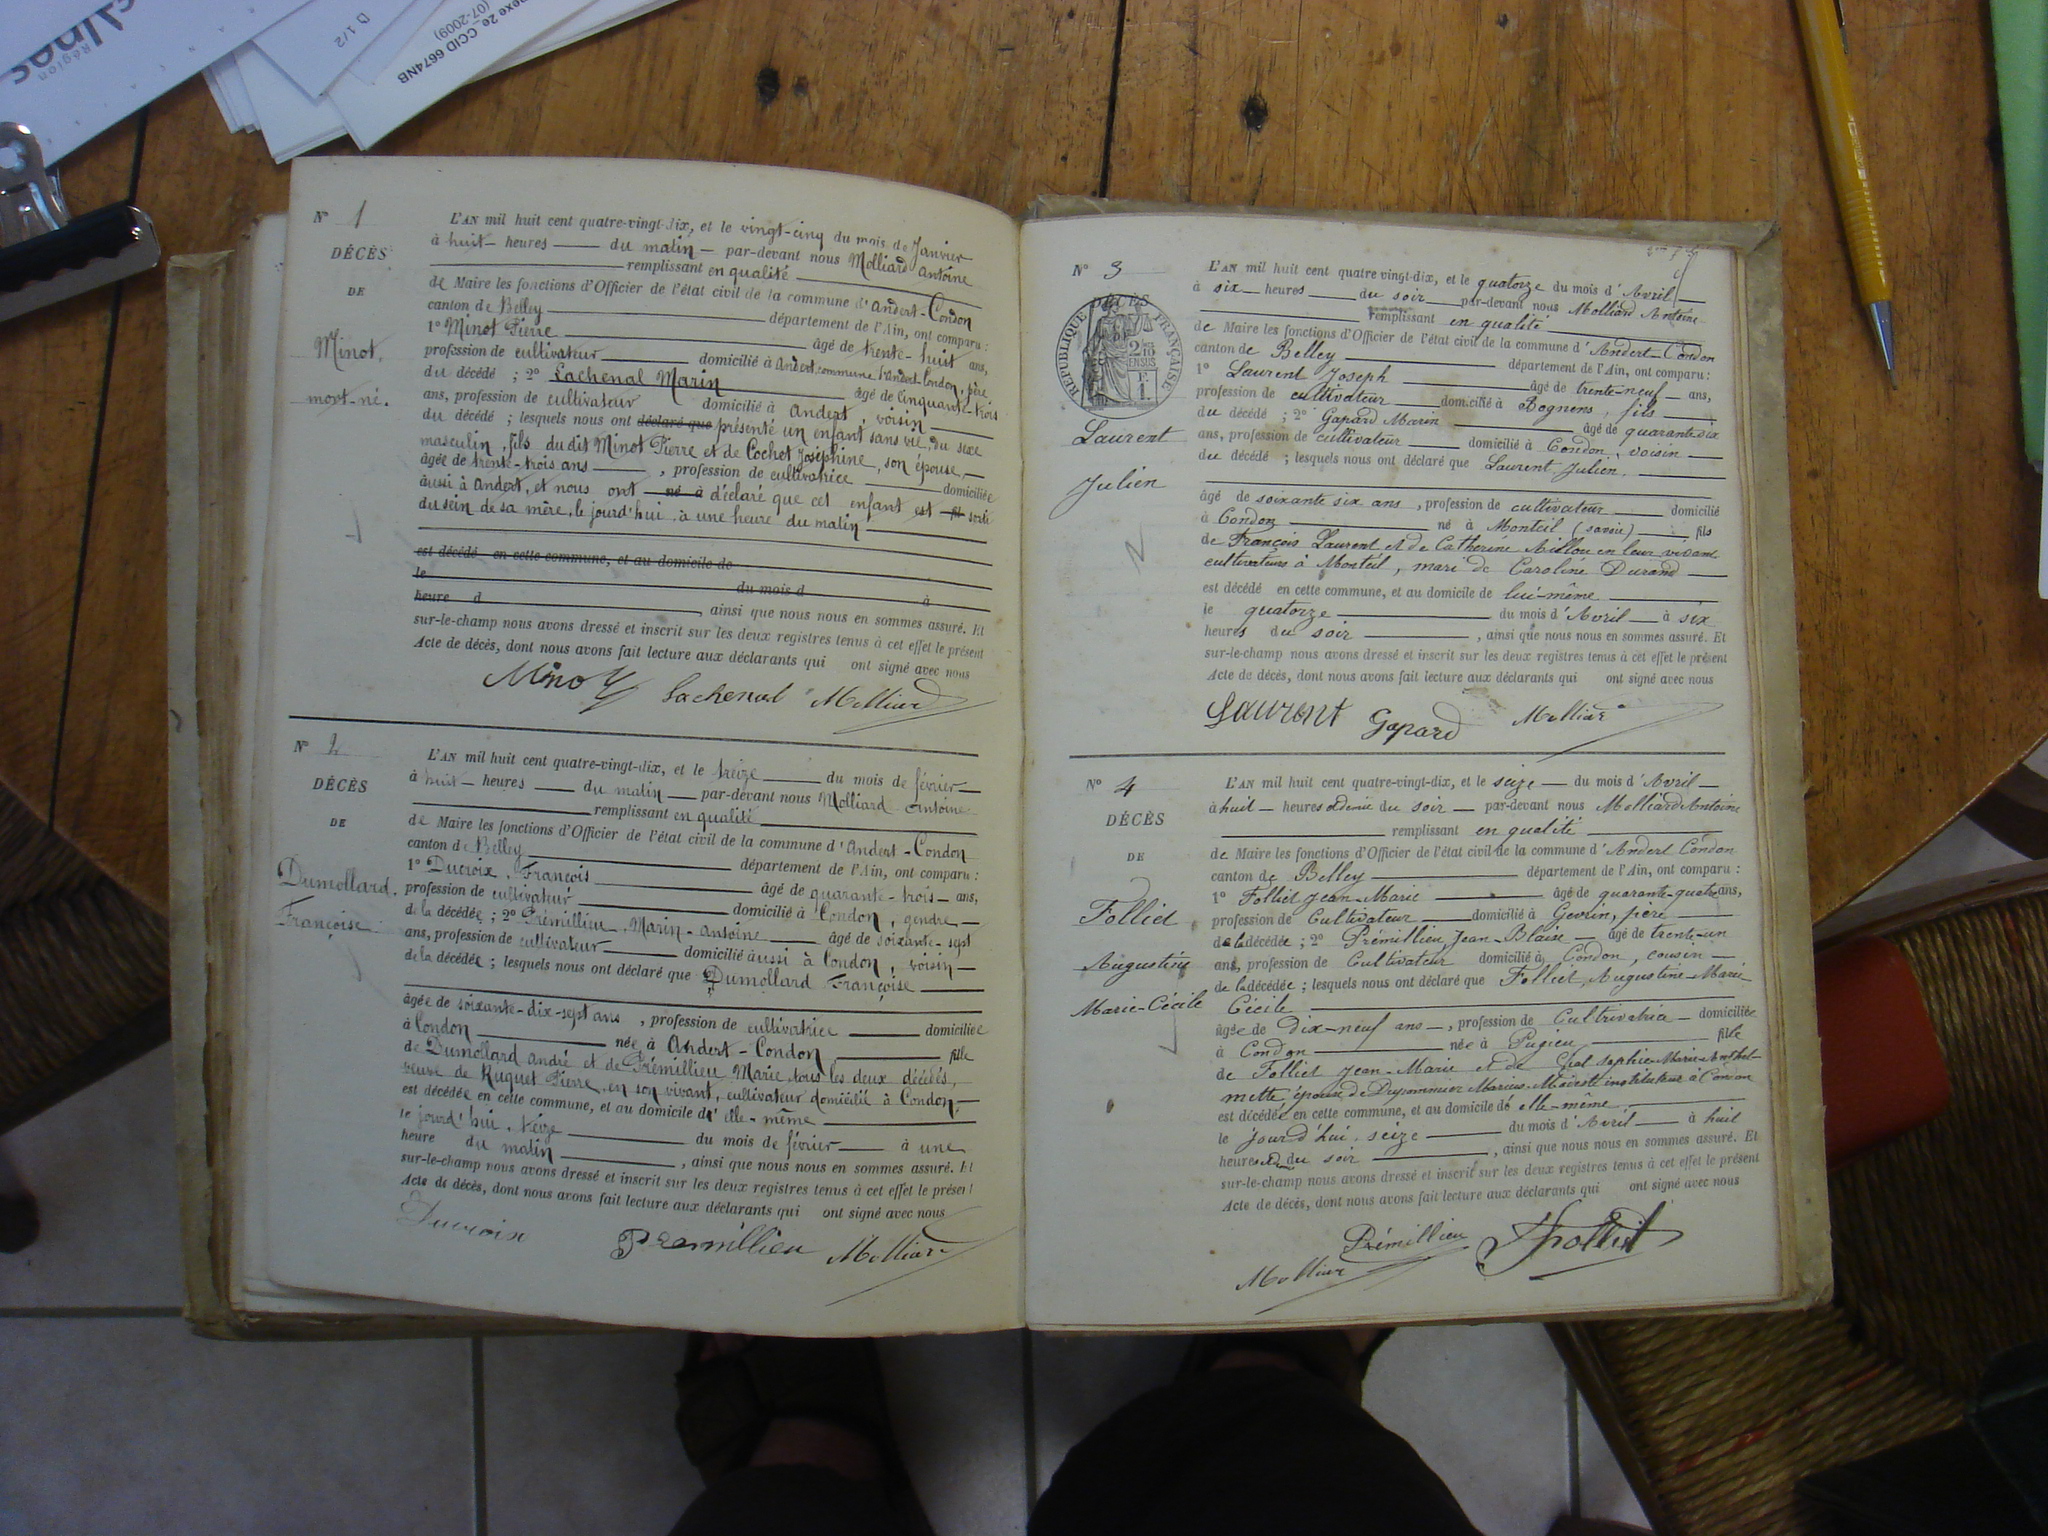 Région
D 1/2
exe 2e CCID 6674NB
(07-2009)
N° 1
DÉCÈS
DE
Minot,
mort-né.
L'AN mil huit cent quatre-vingt-dix, et le vingt-cinq du mois de Janvier
à huit heures du matin par-devant nous Molliard Antoine
remplissant en qualité
de Maire les fonctions d'Officier de l'état civil de la commune d'Andert-Condon
canton de Belley département de l'Ain, ont comparu :
1° Minot Pierre âgé de trente-huit ans,
profession de cultivateur domicilié à Andert, commune d'Andert-Condon, père
du décédé ; 2° Lachenal Marin âgé de cinquante-trois
ans, profession de cultivateur domicilié à Andert, voisin
du décédé ; lesquels nous ont déclaré que présenté un enfant sans vie, du sexe
masculin, fils du dit Minot Pierre et de Cochet Joséphine, son épouse,
âgée de trente-trois ans, profession de cultivatrice domiciliée
aussi à Andert, et nous ont né à déclaré que cet enfant est fil sorti
du sein de sa mère, le jourd'hui, à une heure du matin
est décédé en cette commune, et au domicile de
le du mois d à
heure d , ainsi que nous nous en sommes assuré. Et
sur-le-champ nous avons dressé et inscrit sur les deux registres tenus à cet effet le présent
Acte de décès, dont nous avons fait lecture aux déclarants qui ont signé avec nous
Minot Lachenal Molliard
N° 2
DÉCÈS
DE
Dumollard.
Françoise
L'AN mil huit cent quatre-vingt-dix, et le treize du mois de février
à huit heures du matin par-devant nous Molliard Antoine
remplissant en qualité
de Maire les fonctions d'Officier de l'état civil de la commune d'Andert-Condon
canton de Belley département de l'Ain, ont comparu :
1° Ducroix, François âgé de quarante-trois ans,
profession de cultivateur domicilié à Condon, gendre
de la décédée ; 2° Prémillieu, Marin-Antoine âgé de soixante-sept
ans, profession de cultivateur domicilié aussi à Condon, voisin
de la décédée ; lesquels nous ont déclaré que Dumollard Françoise
âgée de soixante-dix-sept ans, profession de cultivatrice domiciliée
à Condon née à Andert-Condon, fille
de Dumollard André et de Prémillieu Marie, tous les deux décédés,
veuve de Huguet Pierre, en son vivant, cultivateur domicilié à Condon,
est décédée en cette commune, et au domicile d'elle-même
le jourd'hui, treize du mois de février à une
heure du matin, ainsi que nous nous en sommes assuré. Et
sur-le-champ nous avons dressé et inscrit sur les deux registres tenus à cet effet le présent
Acte de décès, dont nous avons fait lecture aux déclarants qui ont signé avec nous
Ducroix Prémillieu Molliard
N° 3
DÉCÈS
RÉPUBLIQUE FRANÇAISE
2/10
EN SUS
F.
1.
Laurent
Julien
L'AN mil huit cent quatre vingt-dix, et le quatorze du mois d'Avril
à six heures du soir par-devant nous Molliard Antoine
remplissant en qualité
de Maire les fonctions d'Officier de l'état civil de la commune d'Andert-Condon
canton de Belley département de l'Ain, ont comparu :
1° Laurent Joseph âgé de trente-neuf ans,
profession de cultivateur domicilié à Bognens, fils
du décédé ; 2° Gapard Marin âgé de quarante-six
ans, profession de cultivateur domicilié à Condon, voisin
du décédé ; lesquels nous ont déclaré que Laurent Julien.
âgé de soixante six ans, profession de cultivateur domicilié
à Condon né à Monteil (savoie) fils
de François Laurent et de Catherine Aillou en leur vivant
cultivateurs à Montéil, mari de Caroline Durand
est décédé en cette commune, et au domicile de lui-même
le quatorze du mois d'Avril à six
heures du soir, ainsi que nous nous en sommes assuré. Et
sur-le-champ nous avons dressé et inscrit sur les deux registres tenus à cet effet le présent
Acte de décès, dont nous avons fait lecture aux déclarants qui ont signé avec nous
Laurent Gapard Molliard
N° 4
DÉCÈS
DE
Folliet
Augustine
Marie-Cécile
L'AN mil huit cent quatre-vingt-dix, et le seize du mois d'Avril
à huit heures et demie du soir par-devant nous Molliard Antoine
remplissant en qualité
de Maire les fonctions d'Officier de l'état civil de la commune d'Andert Condon
canton de Belley département de l'Ain, ont comparu :
1° Folliet Jean-Marie âgé de quarante-quatre ans,
profession de Cultivateur domicilié à Gevrin, père
de la décédée ; 2° Prémillieu, Jean-Blaise âgé de trente-un
ans, profession de Cultivateur domicilié à Condon, cousin
de la décédée ; lesquels nous ont déclaré que Folliet, Augustine-Marie-
Cécile
âgée de dix-neuf ans, profession de Cultivatrice domiciliée
à Condon née à Pugieu fille
de Folliet Jean-Marie et de Sophie-Marie-Anthel-
mette, épouse de Marius-Modeste instituteur à Condon
est décédée en cette commune, et au domicile d'elle-même
le jourd'hui, seize du mois d'Avril à huit
heures du soir, ainsi que nous nous en sommes assuré. Et
sur-le-champ nous avons dressé et inscrit sur les deux registres tenus à cet effet le présent
Acte de décès, dont nous avons fait lecture aux déclarants qui ont signé avec nous
Prémillieu Folliet
Molliard